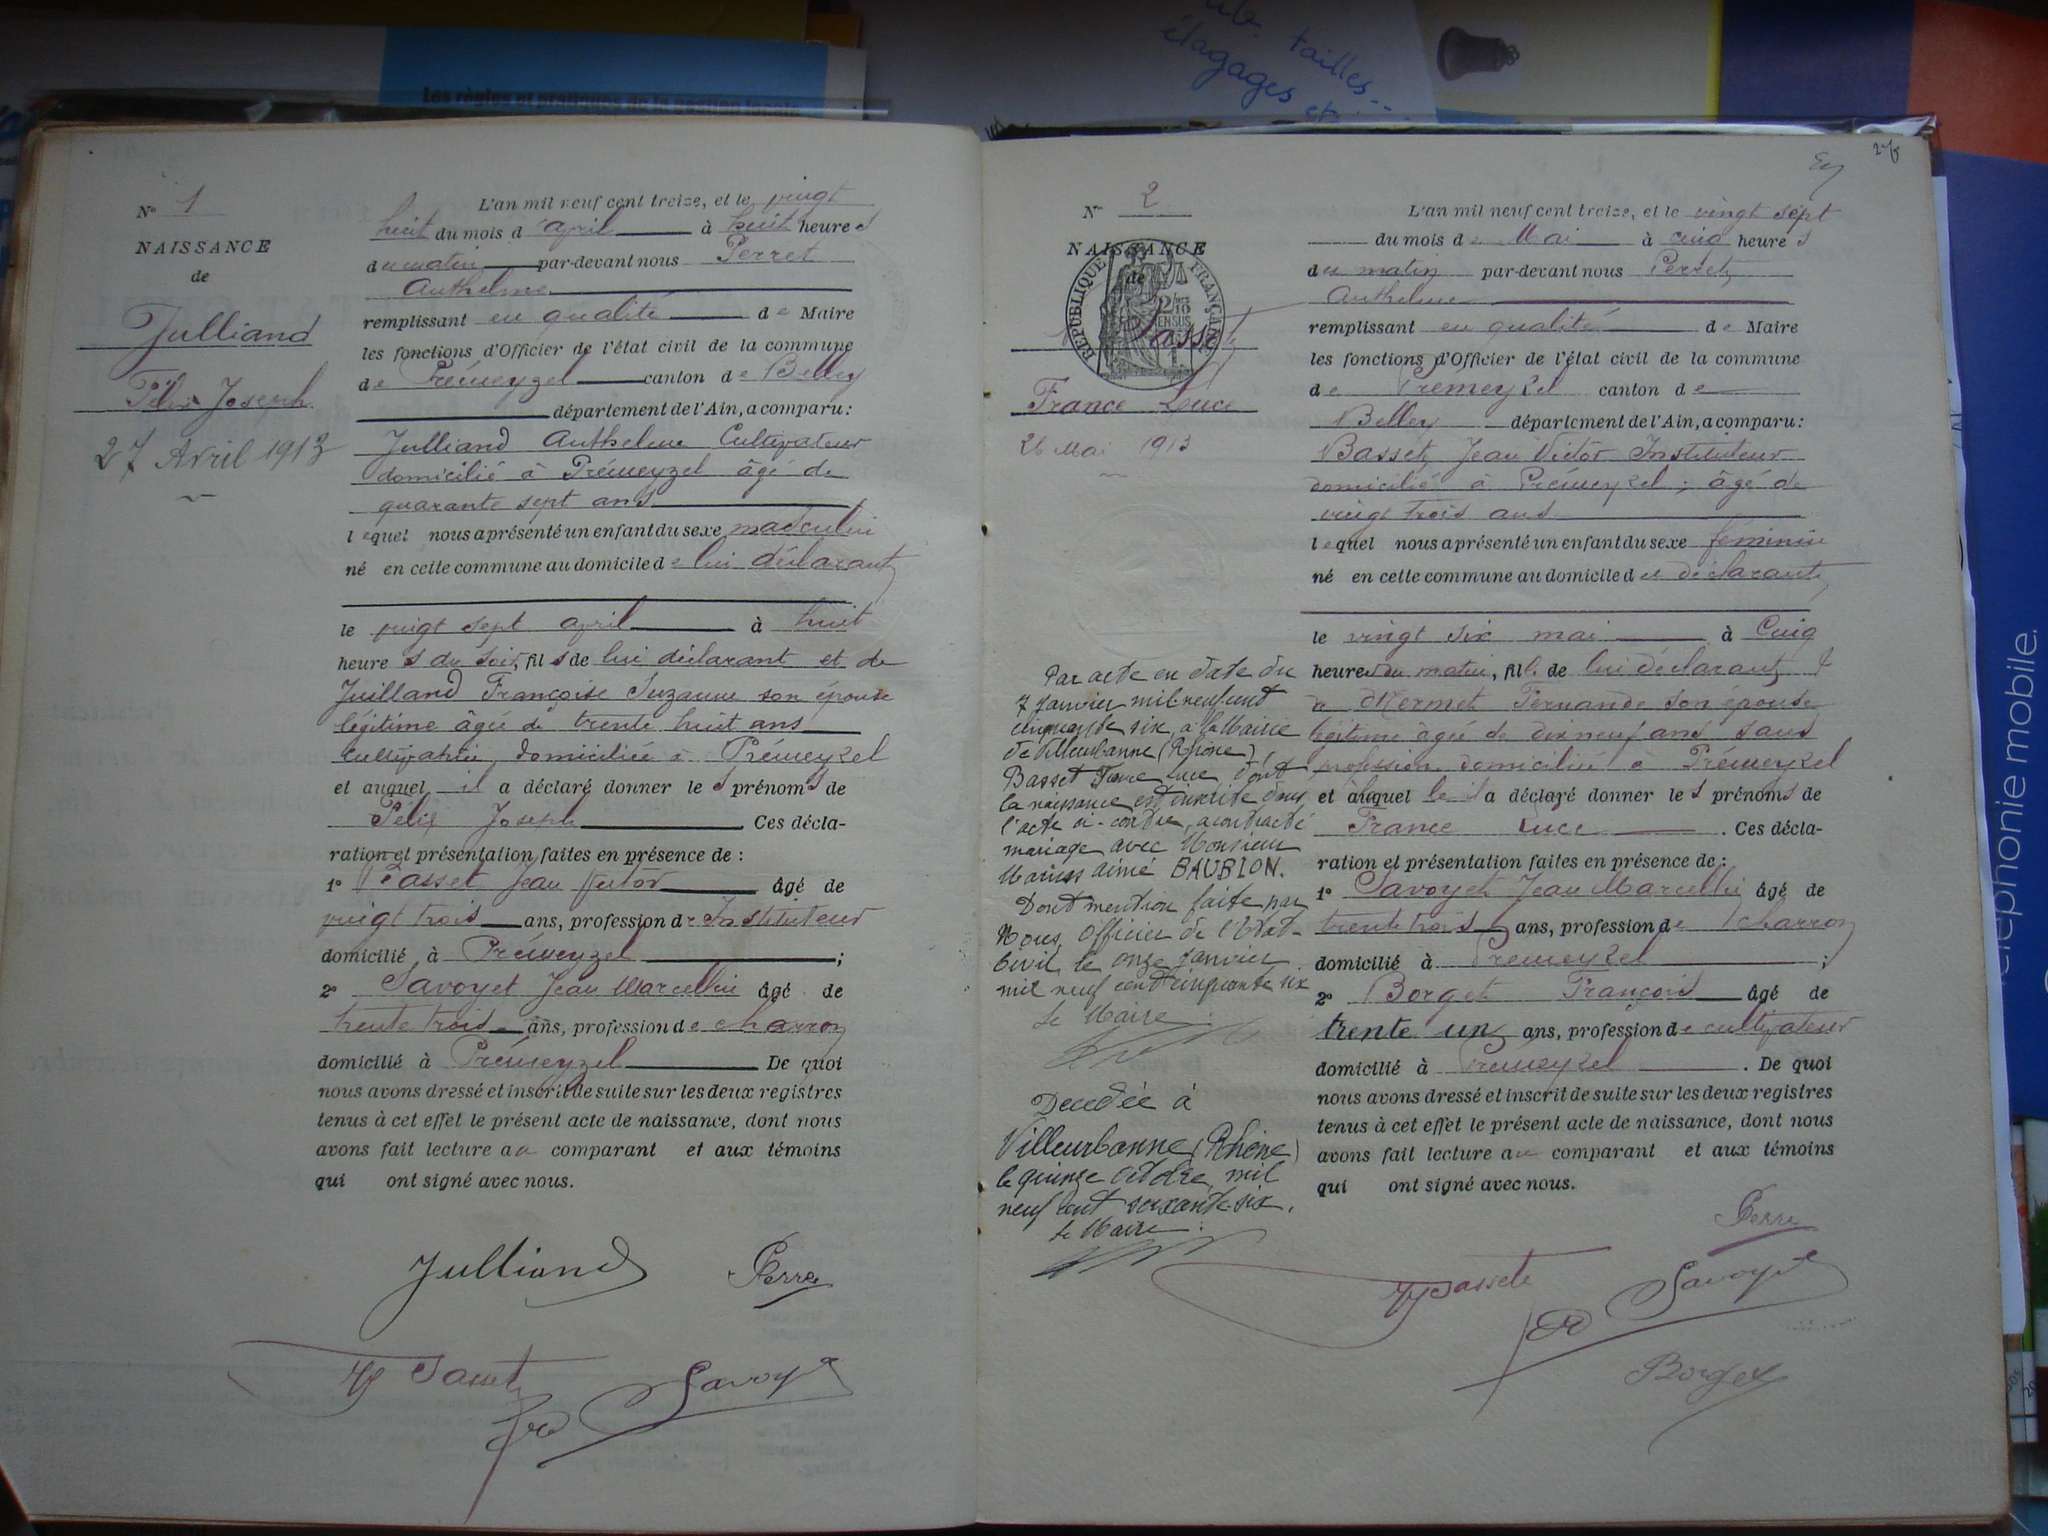 tailles...
élagages et
Les règles et pratiques de la gestion locale
N° 1
NAISSANCE
de
Julliand
Félix Joseph
27 Avril 1913
L'an mil neuf cent treize, et le vingt
huit du mois d'avril à huit heures
du matin par-devant nous Perret
Anthelme
remplissant en qualité de Maire
les fonctions d'Officier de l'état civil de la commune
de Prémeyzel canton de Belley
département de l'Ain, a comparu :
Julliand Anthelme Cultivateur
domicilié à Prémeyzel âgé de
quarante sept ans
lequel nous a présenté un enfant du sexe masculin
né en cette commune au domicile de lui déclarant
le vingt sept avril à huit
heures du soir, fils de lui déclarant et de
Juilland Françoise Suzanne son épouse
légitime âgée de trente huit ans
cultivatrice, domiciliée à Prémeyzel
et auquel il a déclaré donner les prénoms de
Félix Joseph Ces décla-
ration et présentation faites en présence de :
1° Basset Jean Victor âgé de
vingt trois ans, profession de Instituteur
domicilié à Prémeyzel ;
2° Savoyet Jean Marcellin âgé de
trente trois ans, profession de charron
domicilié à Prémeyzel De quoi
nous avons dressé et inscrit de suite sur les deux registres
tenus à cet effet le présent acte de naissance, dont nous
avons fait lecture au comparant et aux témoins
qui ont signé avec nous.
Julliand Perret
Basset Savoyet
N° 2
NAISSANCE
de
RÉPUBLIQUE FRANÇAISE
Basset
France Luce
26 Mai 1913
Par acte en date du
7 janvier mil neuf cent
cinquante six, à la Mairie
de Villeurbanne (Rhône),
Basset France Luce dont
la naissance est inscrite dans
l'acte ci-contre, a contracté
mariage avec Monsieur
Marius Aimé BAUBION.
Dont mention faite par
Nous, Officier de l'Etat-
Civil, le onze janvier
mil neuf cent cinquante six
Le Maire :
Décédée à
Villeurbanne (Rhône)
le quinze octobre mil
neuf cent soixante-six.
Le Maire :
L'an mil neuf cent treize, et le vingt sept
du mois de Mai à cinq heures
du matin par-devant nous Perret
Anthelme
remplissant en qualité de Maire
les fonctions d'Officier de l'état civil de la commune
de Premeyzel canton de
Belley département de l'Ain, a comparu :
Basset Jean Victor Instituteur
domicilié à Prémeyzel ; âgé de
vingt trois ans
lequel nous a présenté un enfant du sexe féminin
né en cette commune au domicile du déclarant
le vingt six mai à cinq
heures du matin, fille de lui déclarant &
de Mermet Fernande son épouse
légitime âgée de dix neuf ans sans
profession domiciliée à Prémeyzel
et auquel il a déclaré donner les prénoms de
France Luce . Ces décla-
ration et présentation faites en présence de :
1° Savoyet Jean Marcellin âgé de
trente trois ans, profession de charron
domicilié à Premeyzel ;
2° Borget François âgé de
trente un ans, profession de cultivateur
domicilié à Prémeyzel . De quoi
nous avons dressé et inscrit de suite sur les deux registres
tenus à cet effet le présent acte de naissance, dont nous
avons fait lecture au comparant et aux témoins
qui ont signé avec nous.
Perret
Basset Savoyet
Borget
téléphonie mobile.